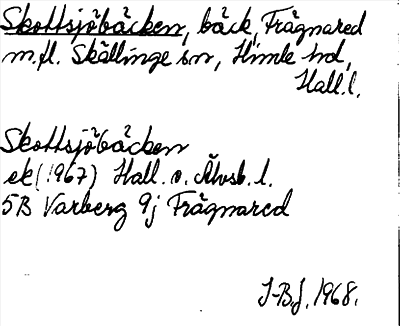 Skottsjöbäcken, bäck, Frägnared
m.fl. Skällinge sn, Himle hd,
Hall.l.
Skottsjöbäcken
ek (1967) Hall. o. Älvsb. l.
5B Varberg 9j Frägnared
J-B.J. 1968.